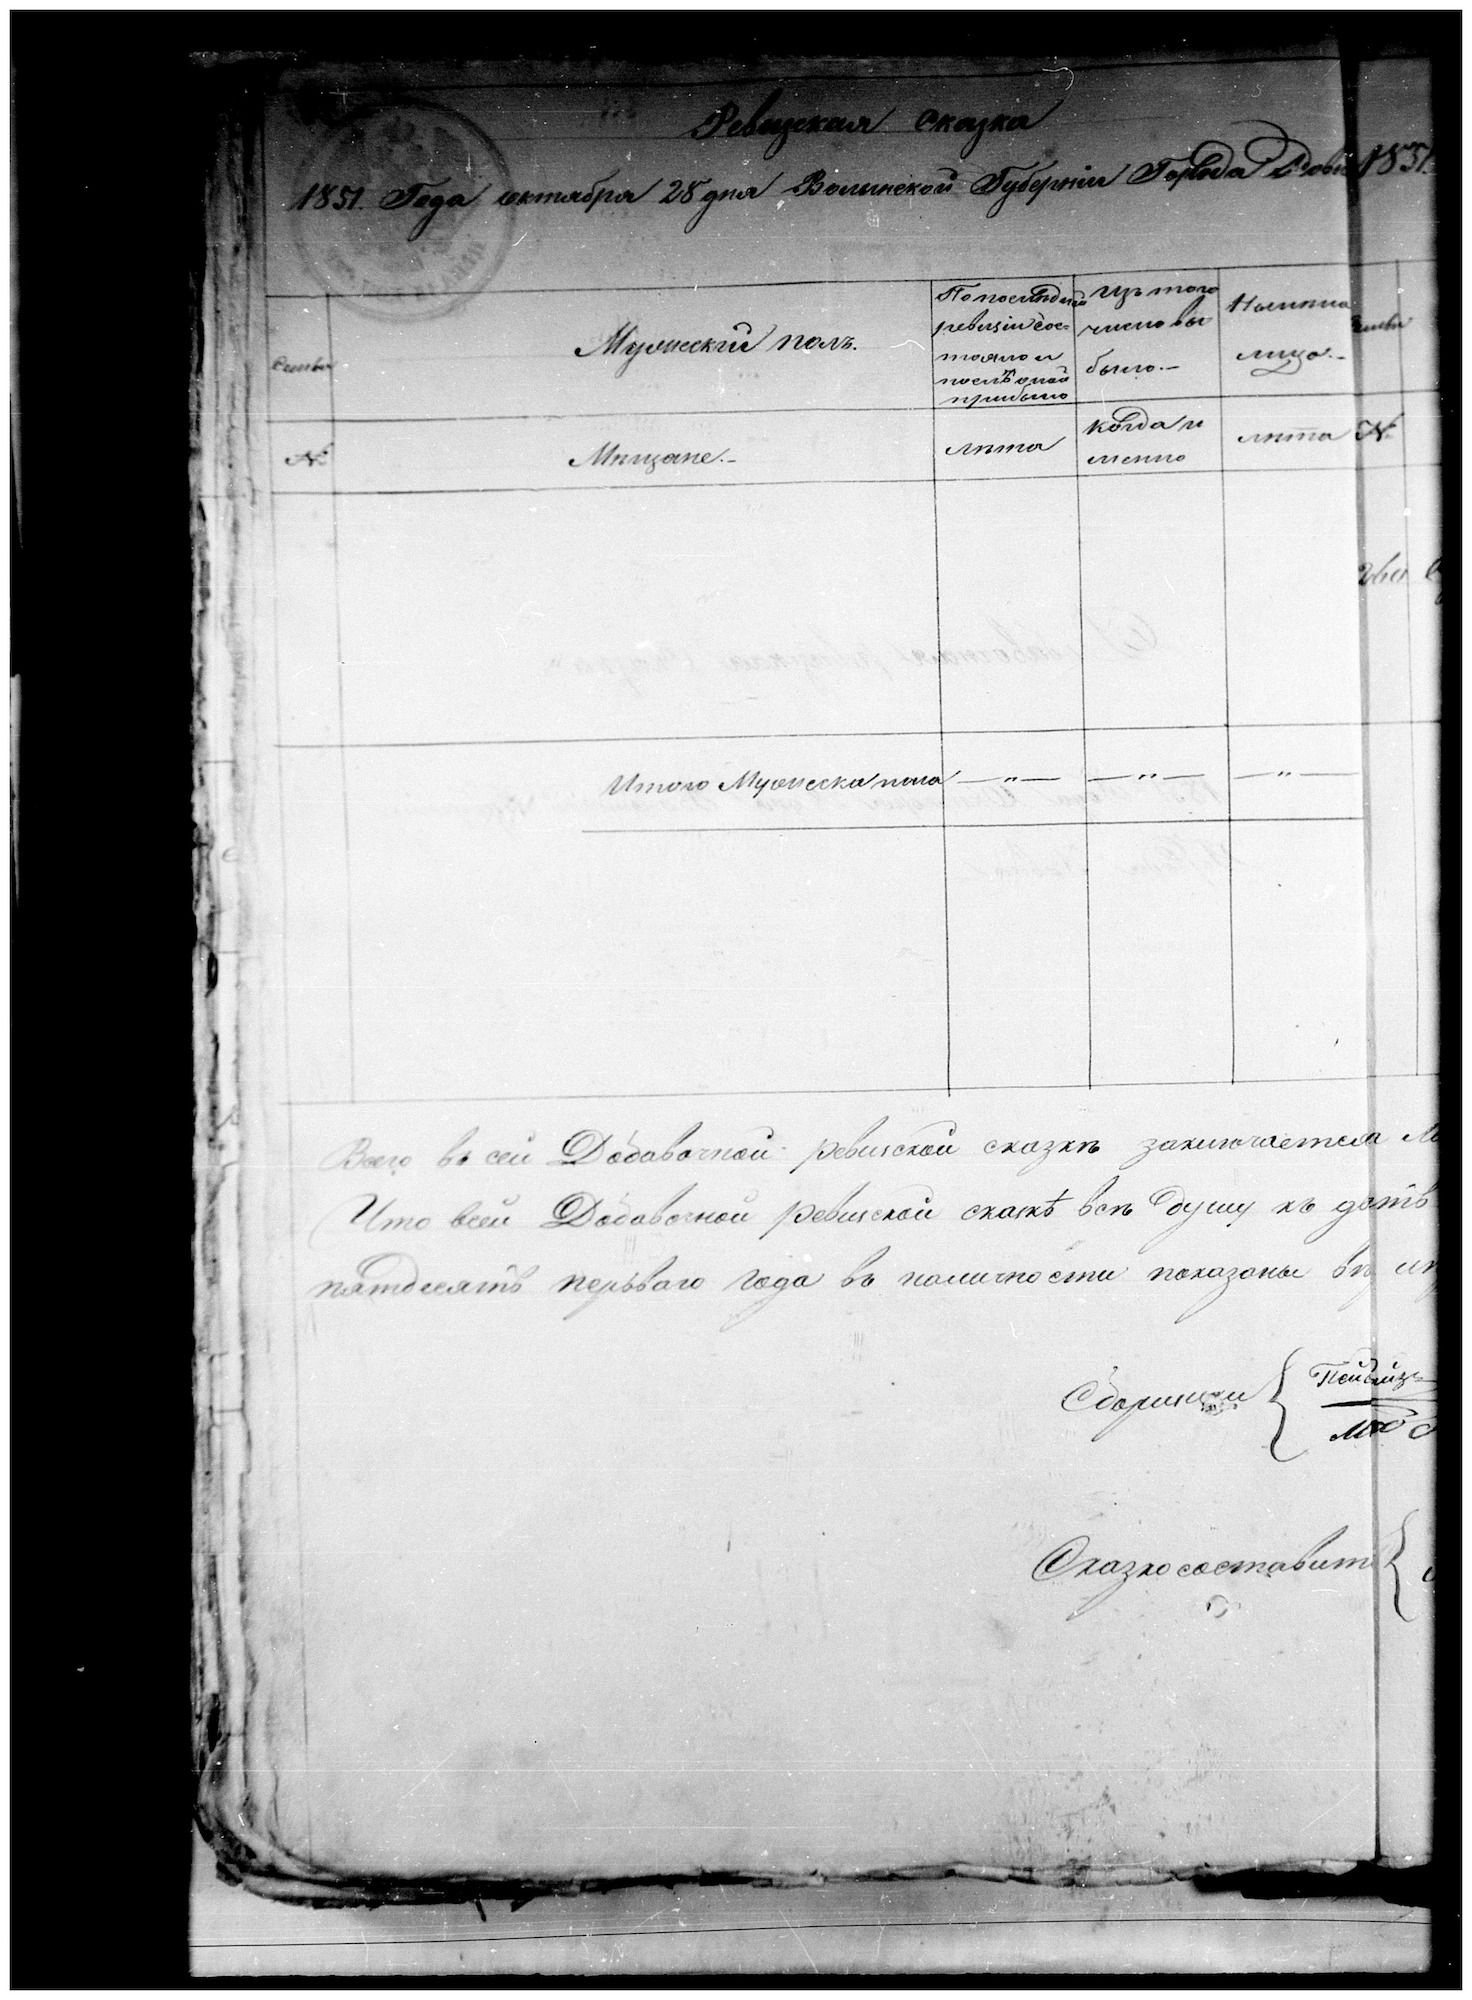 Ревизская сказка
1851. Года октября 28 дня Волынской Губерніи Города 1851.
Семьи
Мужеский полъ.
По последней
ревизіи сос-
тояло и
послѣ оной
прибыло
Изъ того
число вы
было.-
Ныне на
лицо.-
Семьи
№
Мещане.-
лета
когда и
менно
лета
№
Итого Мужеска пола — „ — — „ — — „ —
Всего в сей Добавочной ревизской сказке заключается
Что всей Добавочной ревизской сказкѣ все душу къ
пятдесятъ перьваго года въ наличности показаны
Сборщики
Сказкосоставит